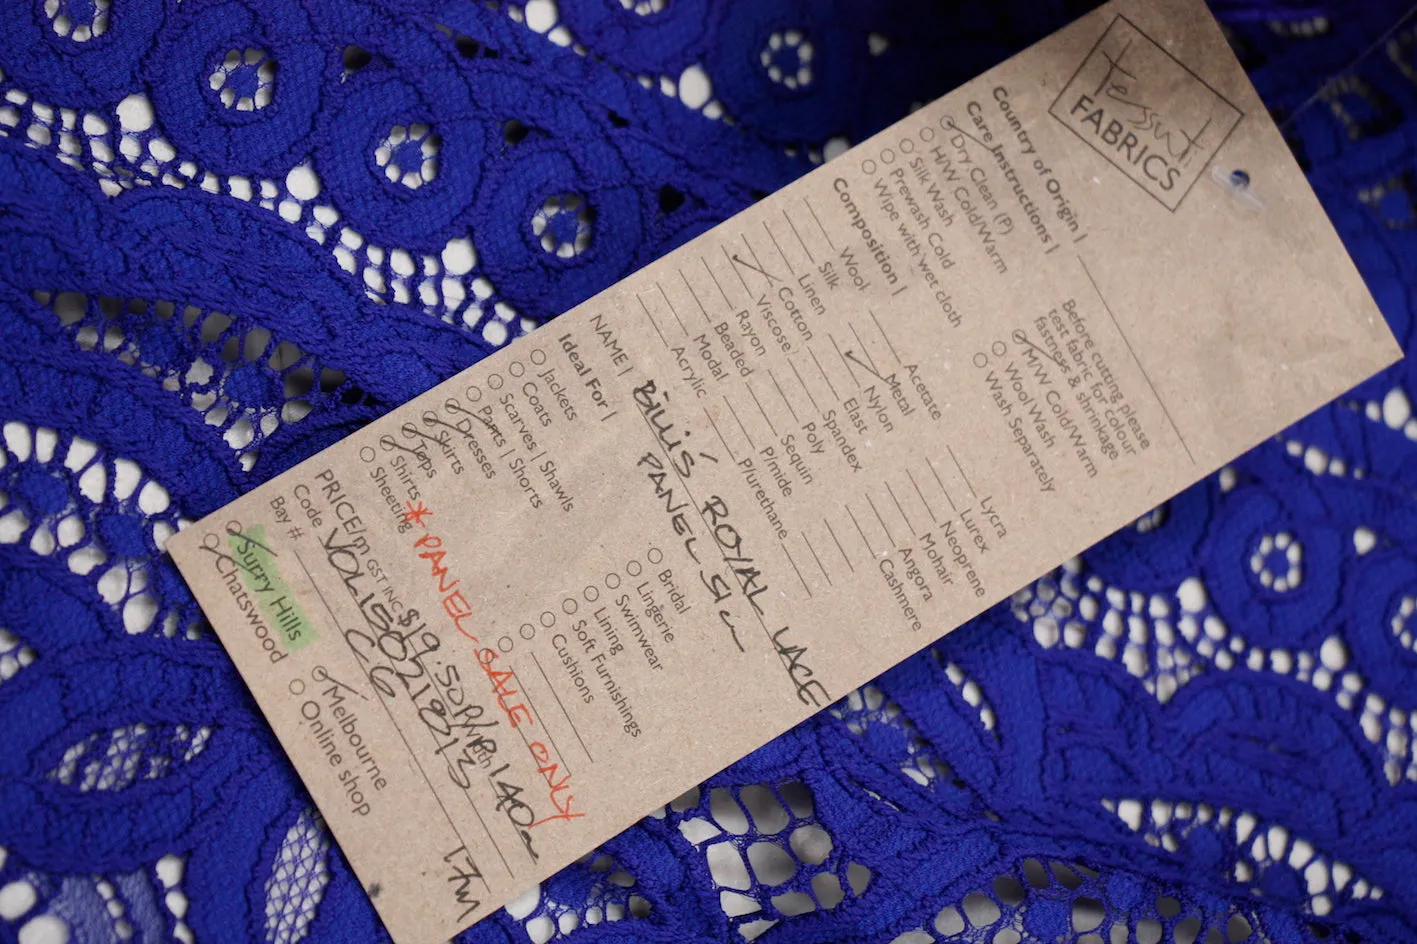 Tessuti
FABRICS
Country of Origin |
Care Instructions |
Dry Clean (P)
H/W Cold/Warm
Silk Wash
Prewash Cold
Wipe with wet cloth
Before cutting please
test fabric for colour
fastness & shrinkage
M/W Cold/Warm
Wool Wash
Wash Separately
Composition |
Wool
Silk
Linen
Cotton
Viscose
Rayon
Beaded
Modal
Acrylic
Acetate
Metal
Nylon
Elast
Spandex
Poly
Sequin
P/mide
P/urethane
Lycra
Lurex
Neoprene
Mohair
Angora
Cashmere
NAME |
ROYAL LACE
PANEL
Ideal For |
Jackets
Coats
Scarves | Shawls
Pants | Shorts
Dresses
Skirts
Tops
Shirts
Sheeting
Bridal
Lingerie
Swimwear
Lining
Soft Furnishings
Cushions
* PANEL SALE ONLY
PRICE/m GST INC $19.50 P/P Width 140cm
Code
Bay # C6 1.7m
Surry Hills
Chatswood
Melbourne
Online shop